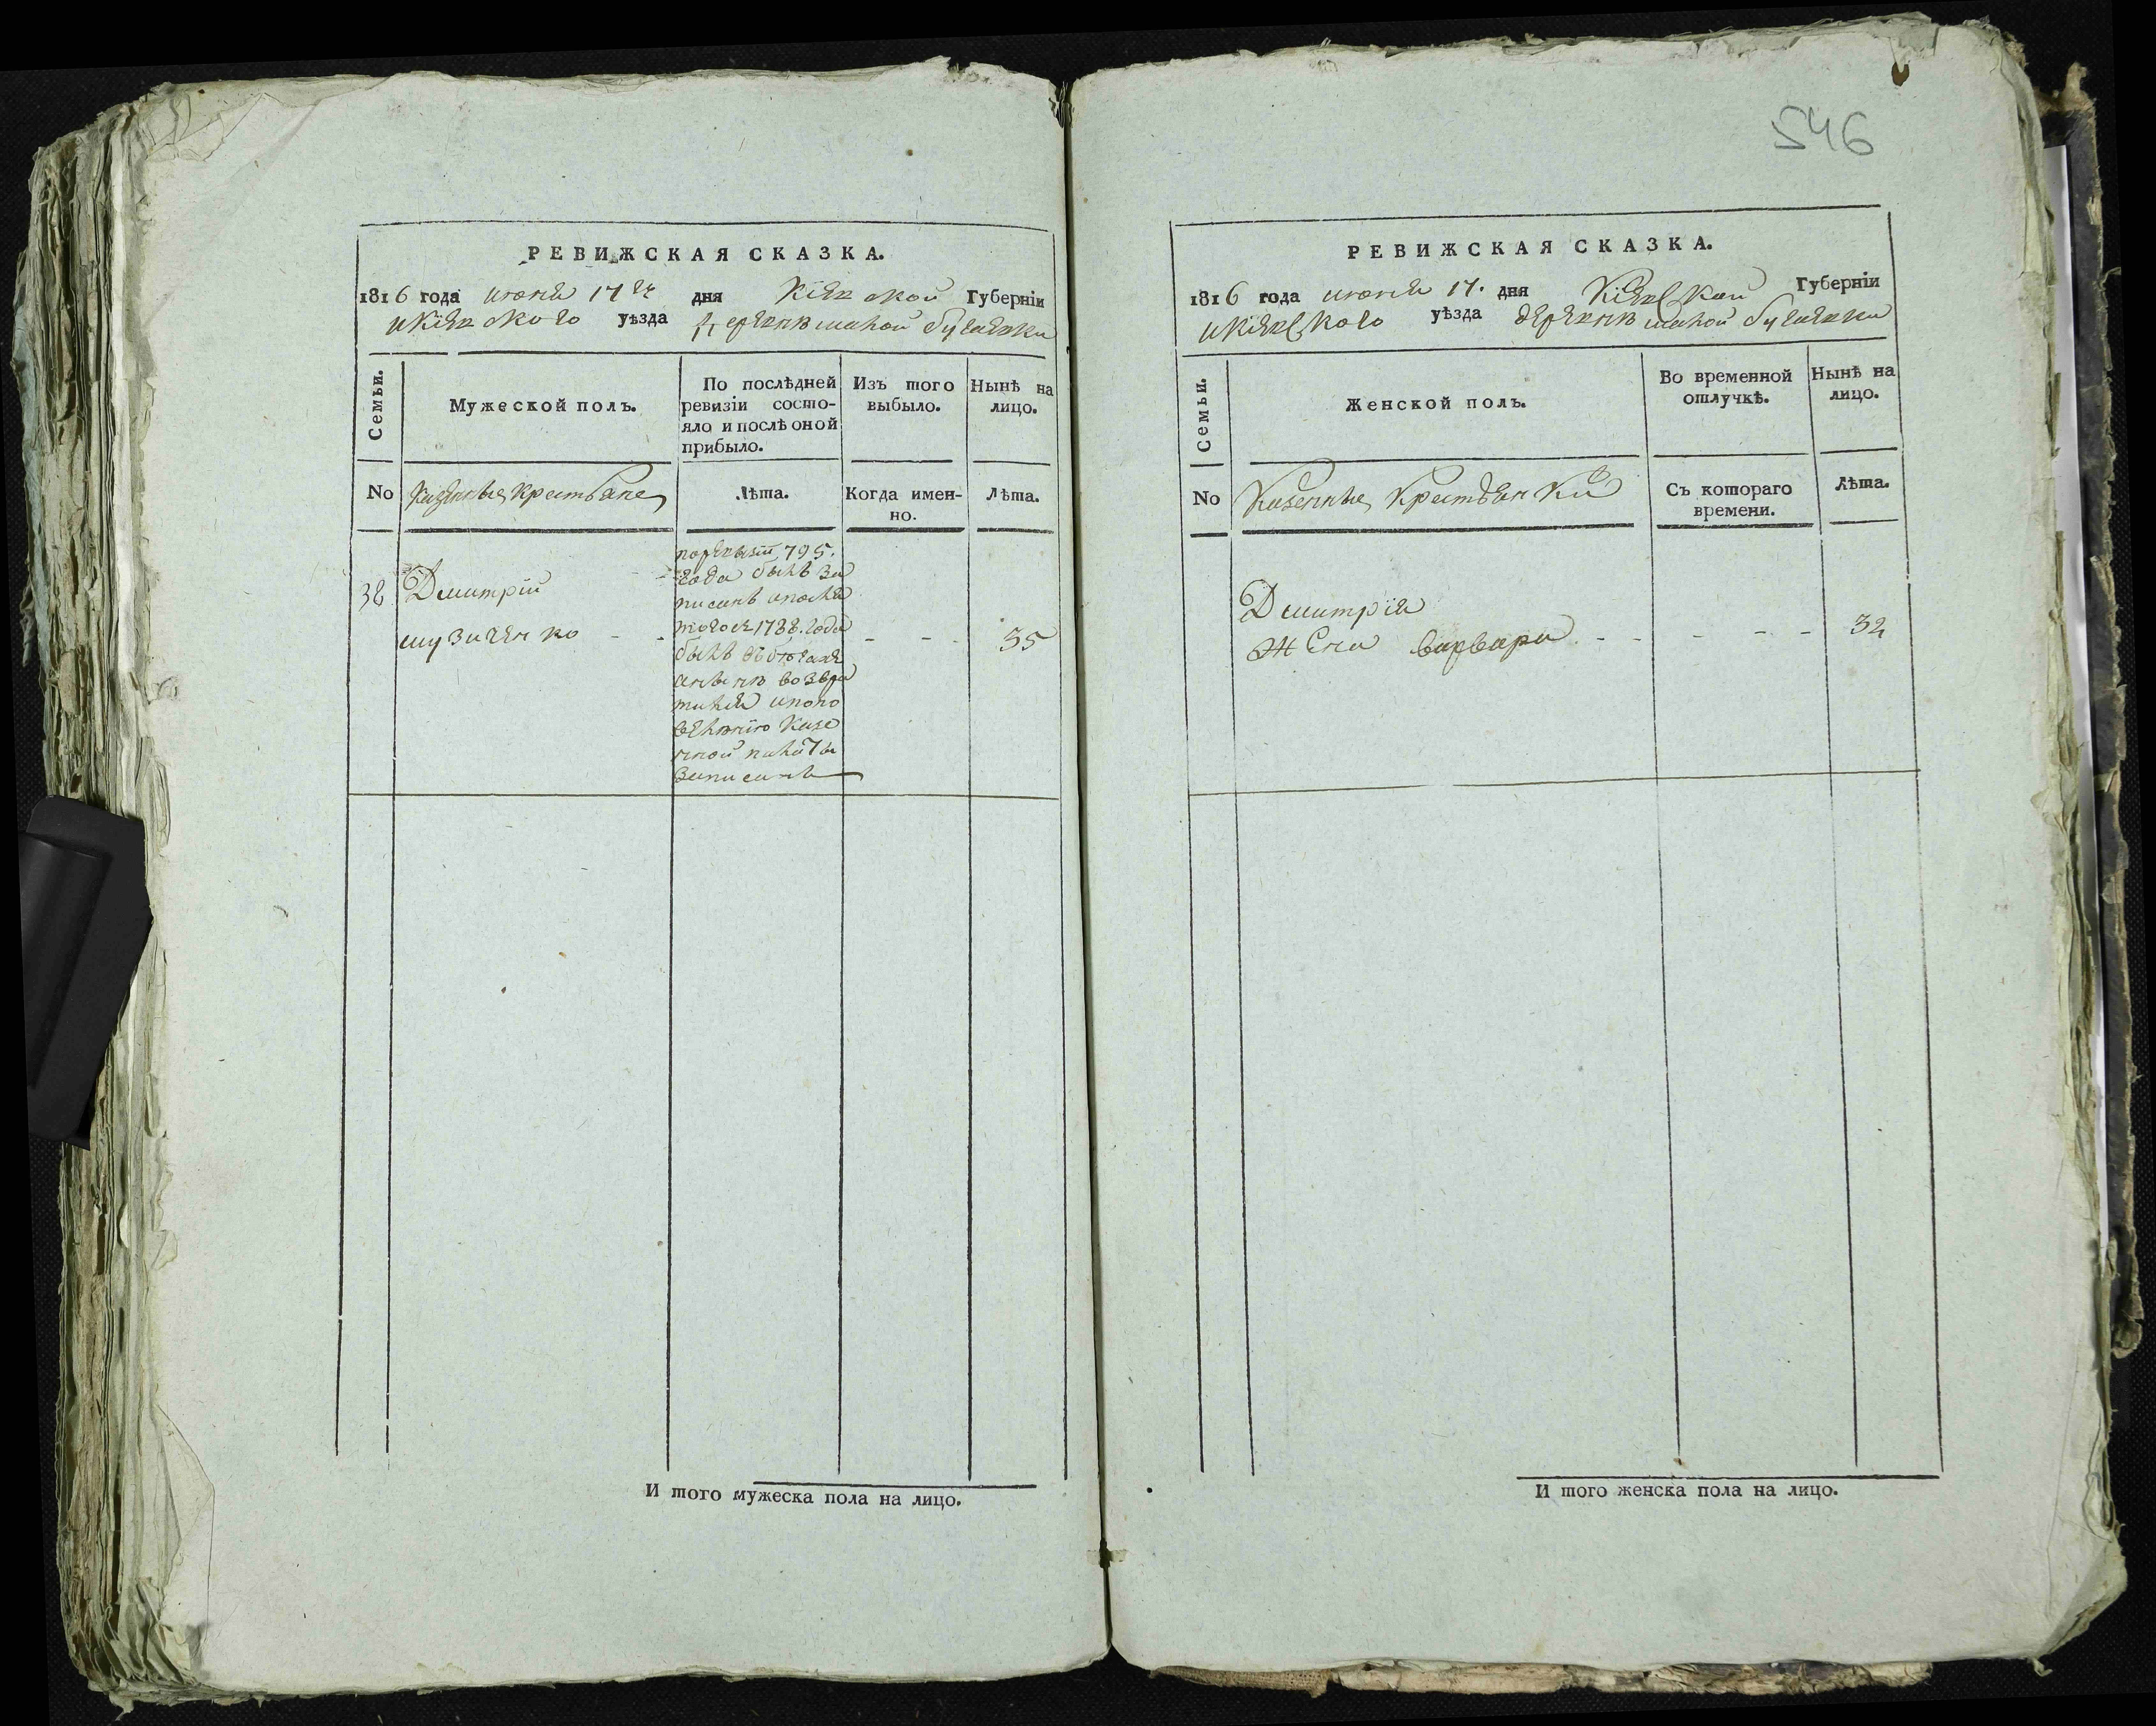 546
РЕВИЖСКАЯ СКАЗКА.
1816 года июня 17 го дня Кіевской Губерніи
и Кіевского уѣзда деревнѣ малой бугаевки
Семьи.
Мужеской полъ.
По послѣдней ревизіи состо-
яло и послѣ оной
прибыло.
Изъ того
выбыло.
Нынѣ на
лицо.
No Казенные Крестьяне
Лѣта.
Когда имен-
но.
Лѣта.
38 Дмитрій
музиченко - - 35
поревизіи 795.
года былъ за
писанъ после
того 1788. года
былъ
нынѣ возвра
тился ипопо
велѣнію Казе
нной палаты
записанъ
И того мужеска пола на лицо.
РЕВИЖСКАЯ СКАЗКА.
1816 года июня 17. дня Кіевской Губерніи
и Кіевского уѣзда деревнѣ малой бугаевки
Семьи.
Женской полъ.
Во временной
отлучкѣ.
Нынѣ на
лицо.
No Казенные Крестьянки
Съ котораго
времени.
Лѣта.
Дмитрія
Жена варвара - - - - - 32
И того женска пола на лицо.